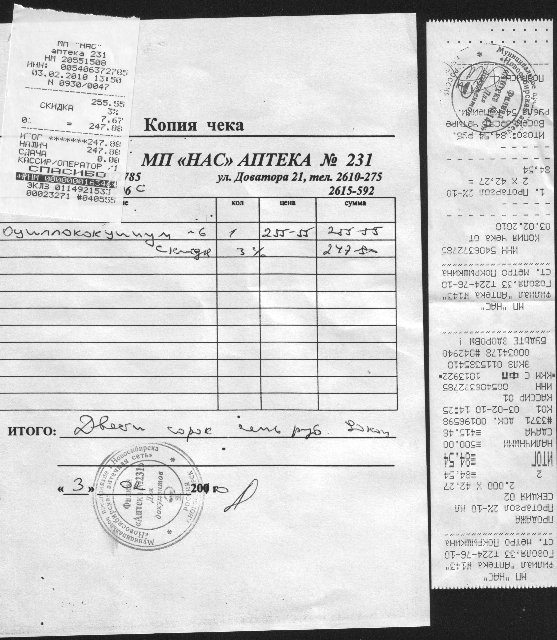 МП "НАС"
аптека 231
НМ 20551508
ИНН: 005406372785
03.02.2010 13:50
N 0930/0047
255.55
СКИДКА 3%
7.67
0: = 247.88
ИТОГ *******247.88
НАЛИЧ 247.88
СДАЧА 0.00
КАССИР/ОПЕРАТОР
СПАСИБО
ЭКЛЗ 0114921531
00023271 #040555
Копия чека
МП «НАС» АПТЕКА № 231
785 ул. Доватора 21, тел. 2610-275
С 2615-592
кол цена сумма
Оциллококцинум №6 1 255-55 255-55
Скидка 3%
ИТОГО: Двести сорок семь руб. 88 коп
« 3 » 02 200
МП "НАС"
Филиал "Аптека #143"
Гоголя.33 т224-76-10
ст. метро Покрышкина
ПРОДАЖА
Протаргол 2%-10 ФЛ
СЕКЦИЯ 02
2.000 X 42.27
2 =84.54
ИТОГ =84.54
НАЛИЧНЫМИ =500.00
СДАЧА =415.46
#3371 ДОК. 00196598
К01 03-02-10 14:25
КАССИР 01
ИНН 005406372785
ККМ С ФП 1013922*
ЭКЛЗ 0115365410
00034178 #042940
БУДЬТЕ ЗДОРОВЫ !
МП "НАС"
Филиал "Аптека #143"
Гоголя.33 т224-76-10
ст. метро Покрышкина
ИНН 5406372785
КОПИЯ ЧЕКА ОТ
03.02.2010
1. Протаргол 2%-10
2 X 42.27 =
84.54
ИТОГО: 84.54 РУБ.
Восемьдесят четыре
рубля 54 копейки